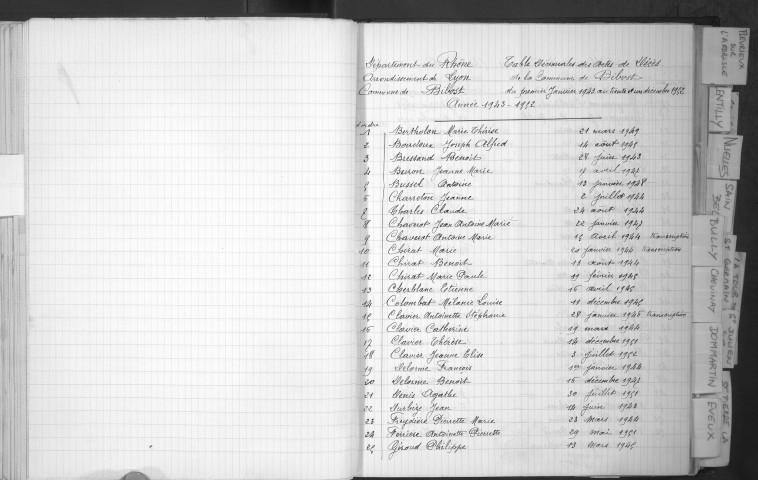 Département du Rhône Table Décennales des Actes de Décès
Arrondissement de Lyon de la Commune de Bibost
Commune de Bibost du premier Janvier 1943 au trente et un decembre 1952
Année 1943 - 1952
1 Bertholon Marie Thérèse 21 mars 1949
2 Joseph Alfred 14 août 1945
3 Bressand Benoit 28 juin 1943
4 Jeanne Marie avril
5 Bussel Antoine 13 janvier 1948
6 Charreton Jeanne 2 juillet 1944
7 Charles Claude 24 aout 1944
8 Chaverot Jean Antoine Marie 22 janvier
9 Chaverot Antoine Marie 15 avril 1944 transcription
10 Chirat Marie 20 janvier 1944 transcription
11 Chirat Benoit 13 août 1944
12 Chirat Marie Paule 19 février 1945
13 Cherblanc Etienne 15 avril 1945
14 Colombat Mélanie Louise 11 décembre 1945
15 Clavier Antoinette Stéphanie 28 janvier 1945 transcription
16 Clavier Catherine 19 mars 1944
17 Clavier Thérèse 14 décembre 1951
18 Clavier Jeanne Elise 3 juillet 1952
19 Delorme François janvier 1944
20 Delorme Benoit 15 décembre
21 Denis Agathe 30 juillet 1951
22 Jean 14 juin 1943
23 Pierrette Marie 23 mars 1944
24 Ferrière Antoinette Pierrette 29 mai 1951
25 Giroud Philippe 13 mars 1945
FLEURIEUX
SUR
L'ARBRESLE
LENTILLY
NUELLES
SAIN BEL
BULLY
ST GERMAIN
CHEVINAY
LA TOUR DE
ST JULIEN
DOMMARTIN
ST PIERRE LA
EVEUX